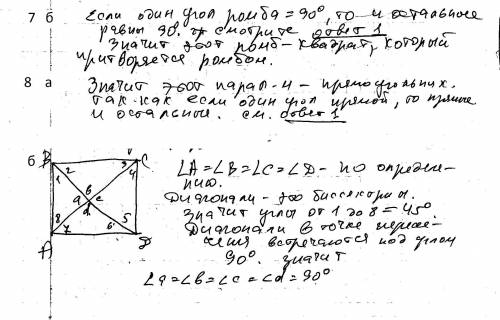 7 б Если один угол ромба = 90°, то и остальные
равны 90. смотрите ответ 1
Значит этот ромб - квадрат, который
притворяется ромбом.
8 а Значит этот парал-м - прямоугольник.
так как если один угол прямой, то прямые
и остальные. см. ответ 1
б B 2 1 3 C 4
a b c d
8 7 6 5
A D
∠A=∠B=∠C=∠D - по определе-
нию.
Диагонали - это биссектрисы.
Значит углы от 1 до 8 = 45°
Диагонали в точке пересе-
чения встречаются под углом
90°. значит
∠a=∠b=∠c=∠d=90°